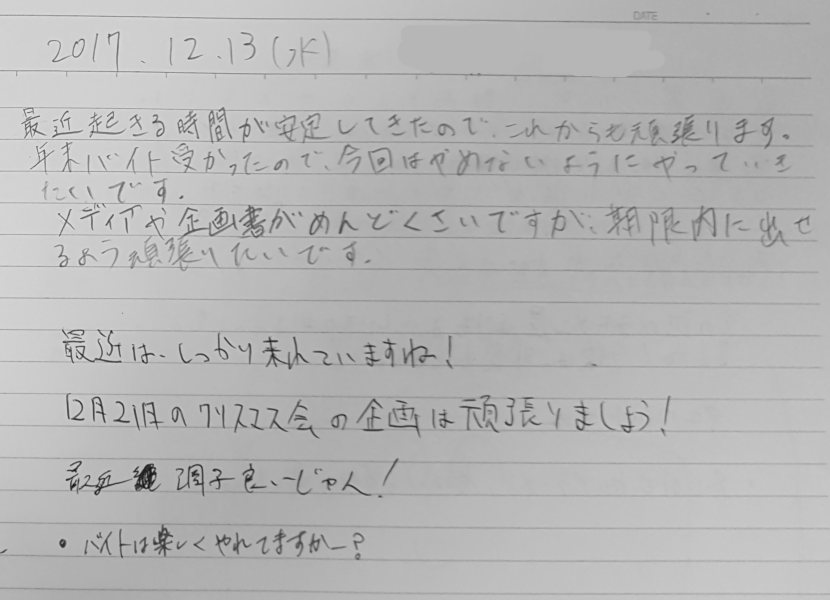 DATE
2017.12.13(水)
最近起きる時間が安定してきたので、これからも頑張ります。
年末バイト受かったので、今回はやめないようにやっていき
たいです。
メディアや企画書がめんどくさいですが、期限内に出せ
るよう頑張りたいです。
最近は、しっかり来れていますね!
12月21日のクリスマス会の企画は頑張りましょう!
最近 調子良いーじゃん!
・バイトは楽しくやれてますかー?